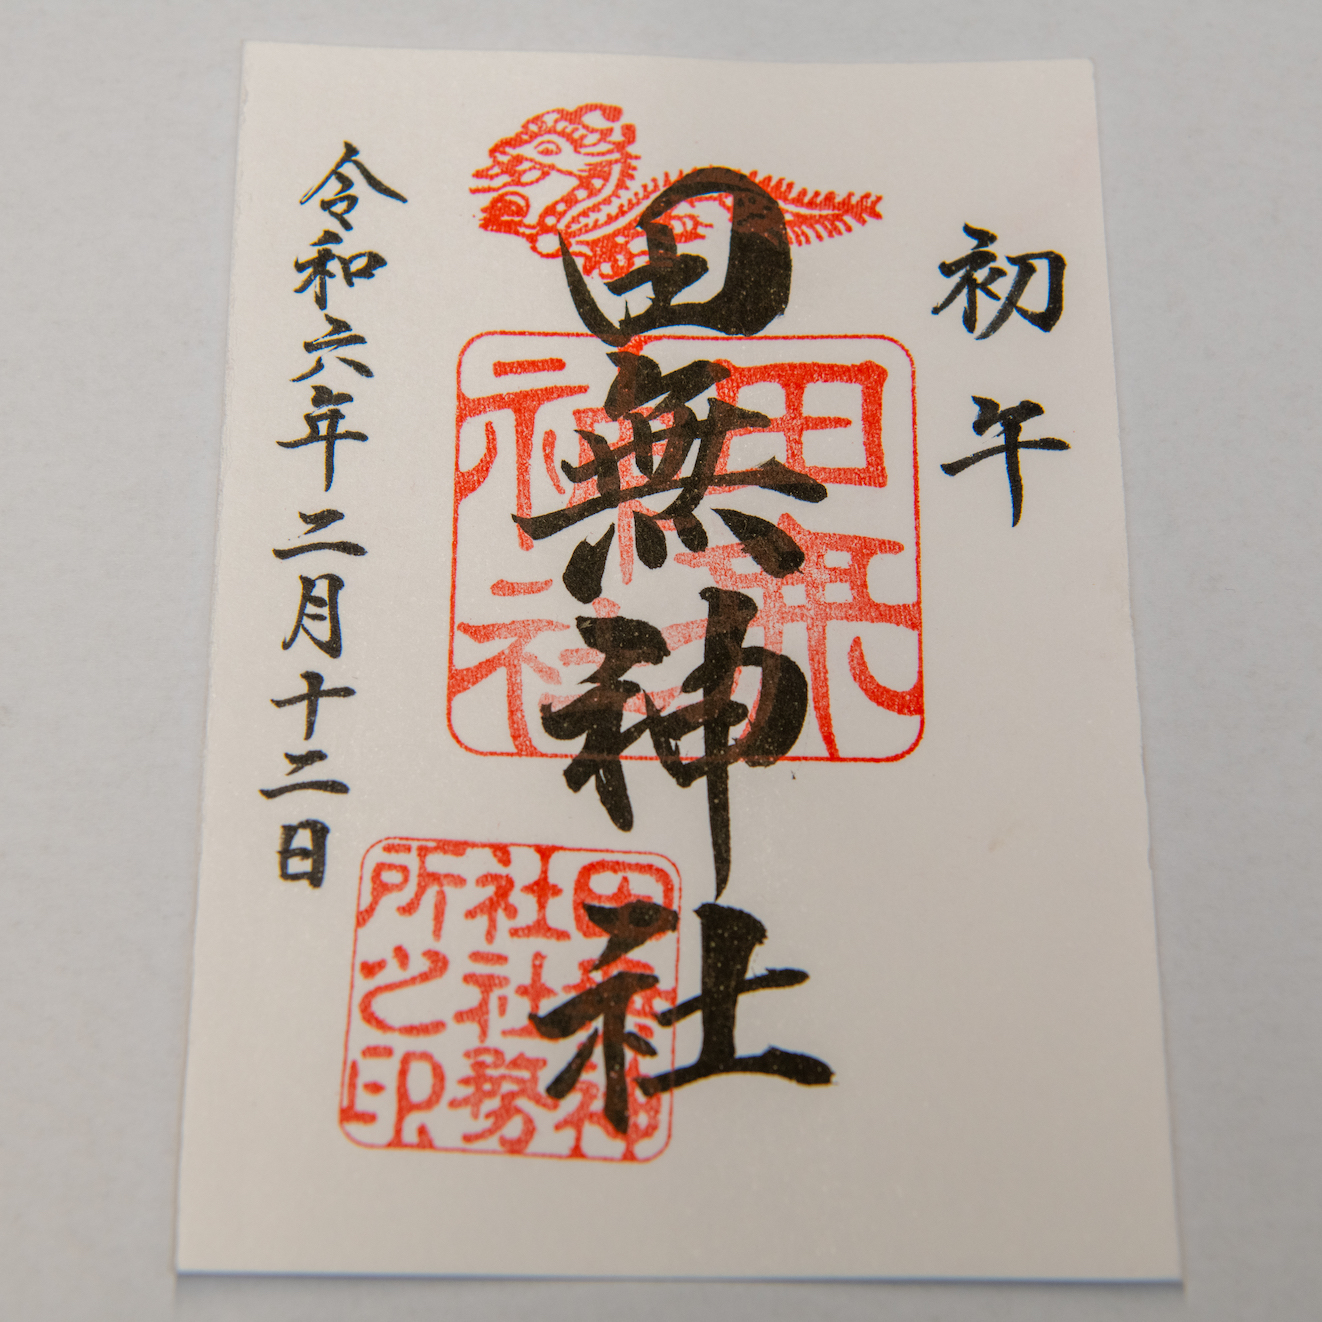 初午
田無神社
田無神社
田無神社社務所之印
令和六年二月十二日